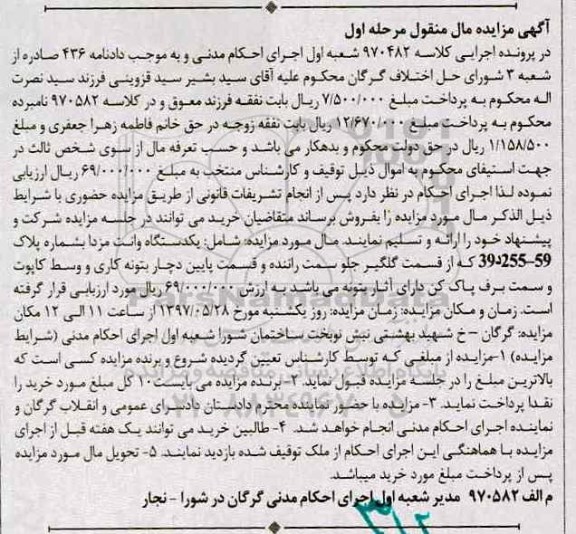 آگهی مزایده مال منقول مرحله اول
در پرونده اجرایی کلاسه ۹۷۰۴۸۲ شعبه اول اجرای احکام مدنی و به موجب دادنامه ۴۳۶ صادره از
شعبه ۳ شورای حل اختلاف گرگان محکوم علیه آقای سید بشیر سید قزوینی فرزند سید نصرت
اله محکوم به پرداخت مبلغ ۷/۵۰۰/۰۰۰ ریال بابت نفقه فرزند معوق و در کلاسه ۹۷۰۵۸۲ نامبرده
محکوم به پرداخت مبلغ ۱۲/۶۷۰/۰۰۰ ریال بابت نفقه زوجه در حق خانم فاطمه زهرا جعفری و مبلغ
۱/۱۵۸/۵۰۰ ریال در حق دولت محکوم و بدهکار می باشد و حسب تعرفه مال از سوی شخص ثالث در
جهت استیفای محکوم به اموال ذیل توقیف و کارشناس منتخب به مبلغ ۶۹/۰۰۰/۰۰۰ ریال ارزیابی
نموده لذا اجرای احکام در نظر دارد پس از انجام تشریفات قانونی از طریق مزایده حضوری با شرایط
ذیل الذکر مال مورد مزایده را بفروش برساند متقاضیان خرید می توانند در جلسه مزایده شرکت و
پیشنهاد خود را ارائه و تسلیم نمایند. مال مورد مزایده: شامل: یکدستگاه وانت مزدا بشماره پلاک
59–255د39 که از قسمت گلگیر جلو سمت راننده و قسمت پایین دچار بتونه کاری و وسط کاپوت
و سمت برف پاک کن دارای آثار بتونه می باشد به ارزش ۶۹/۰۰۰/۰۰۰ ریال مورد ارزیابی قرار گرفته
است. زمان و مکان مزایده: زمان مزایده: روز یکشنبه مورخ ۱۳۹۷/۰۵/۲۸ از ساعت ۱۱ الی ۱۲ مکان
مزایده: گرگان – خ شهید بهشتی نبش نوبخت ساختمان شورا شعبه اول اجرای احکام مدنی (شرایط
مزایده) ۱-مزایده از مبلغی که توسط کارشناس تعیین گردیده شروع و برنده مزایده کسی است که
بالاترین مبلغ را در جلسه مزایده قبول نماید. ۲- برنده مزایده می بایست ۱۰٪ کل مبلغ مورد خرید را
نقدا پرداخت نماید. ۳- مزایده با حضور نماینده محترم دادستان دادسرای عمومی و انقلاب گرگان و
نماینده اجرای احکام مدنی انجام خواهد شد. ۴- طالبین خرید می توانند یک هفته قبل از اجرای
مزایده با هماهنگی این اجرای احکام از ملک توقیف شده بازدید نمایند. ۵- تحویل مال مورد مزایده
پس از پرداخت مبلغ مورد خرید میباشد.
م الف ۹۷۰۵۸۲ مدیر شعبه اول اجرای احکام مدنی گرگان در شورا – نجار